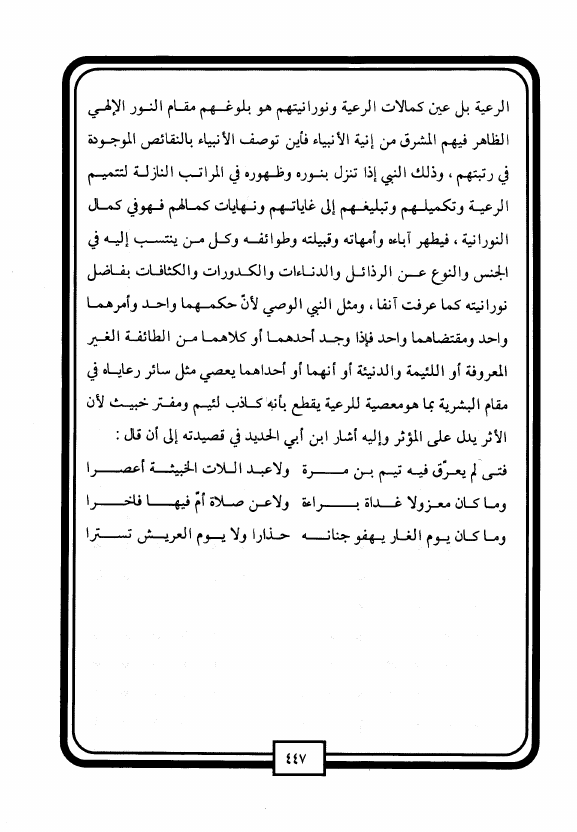 الرعية بل عين كمالات الرعية ونورانيتهم هو بلوغهم مقام النور الإلهي
الظاهر فيهم المشرق من إنية الأنبياء فأين توصف الأنبياء بالنقائص الموجودة
في رتبتهم ، وذلك النبي إذا تنزل بنوره وظهوره في المراتب النازلة لتتميم
الرعية وتكميلهم وتبليغهم إلى غاياتهم ونهايات كمالهم فهو في كمال
النورانية ، فيطهر آباءه وأمهاته وقبيلته وطوائفه وكل من ينتسب إليه في
الجنس والنوع عن الرذائل والدناءات والكدورات والكثافات بفاضل
نورانيته كما عرفت آنفا ، ومثل النبي الوصي لأنّ حكمهما واحد وأمرهما
واحد ومقتضاهما واحد فإذا وجد أحدهما أو كلاهما من الطائفة الغير
المعروفة أو اللئيمة والدنيئة أو أنهما أو أحداهما يعصي مثل سائر رعاياه في
مقام البشرية بما هو معصية للرعية يقطع بأنه كاذب لئيم ومفتر خبيث لأن
الأثر يدل على المؤثر وإليه أشار ابن أبي الحديد في قصيدته إلى أن قال :
فتى لم يعرّق فيه تيم بن مرة ولا عبد اللات الخبيثة أعصرا
وما كان معزولا غداة براءة ولا عن صلاة أمّ فيها فاخرا
وما كان يوم الغار يهفو جنانه حذارا ولا يوم العريش تسترا
٤٤٧